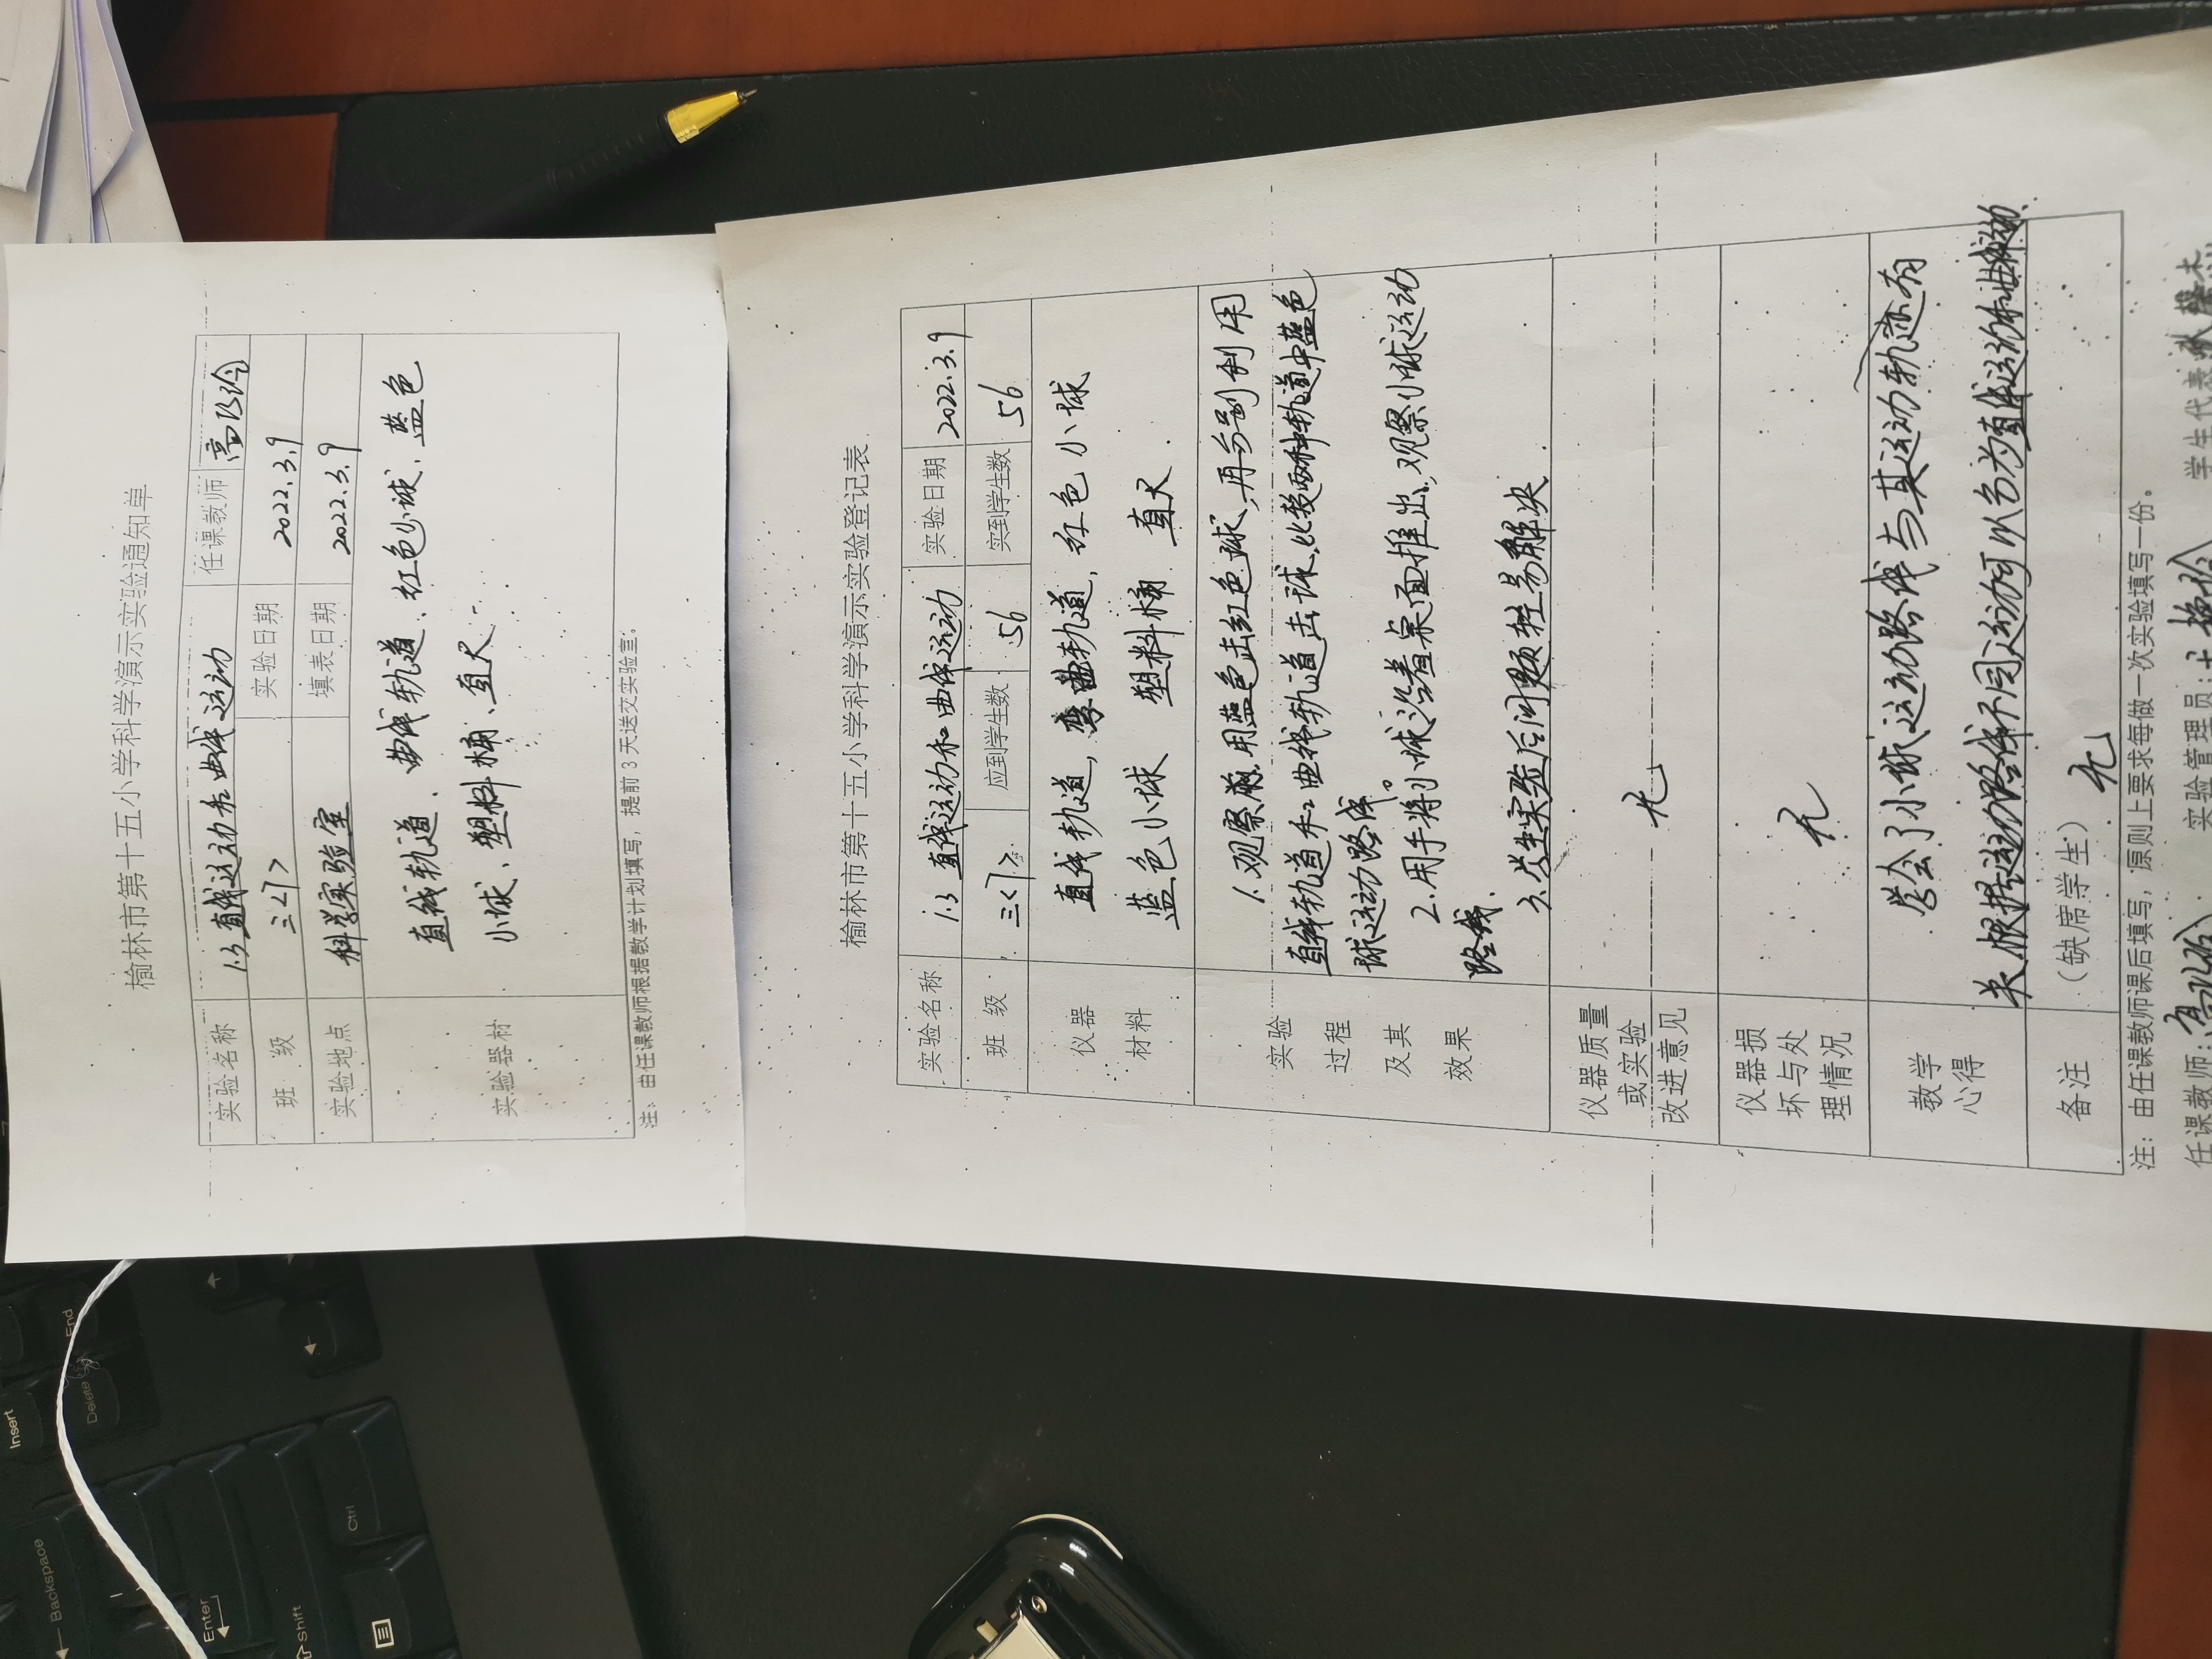 榆林市第十五小学科学演示实验通知单
实验名称 1.3 直线运动和曲线运动 任课教师
班 级 三<1> 实验日期 2022.3.9
实验地点 科学实验室 填表日期 2022.3.9
实验器材
直线轨道、曲线轨道、红色小球、蓝色
小球、塑料桶、直尺
注：由任课教师根据教学计划填写，提前 3 天送交实验室。
榆林市第十五小学科学演示实验登记表
实验名称 1.3 直线运动和曲线运动 实验日期 2022.3.9
班 级 三<1> 应到学生数 56 实到学生数 56
仪器 直线轨道，弯曲轨道，红色小球
材料 蓝色小球 塑料桶 直尺.
实验
过程
及其
效果
1.观察 用蓝色击红色球，再分别利用
直线轨道和曲线轨道击球，比较两种轨道中蓝色
球运动路线。
2.用手将小球沿着桌面推出，观察小球运动
路线.
3.学生实验后问题轻易解决.
仪器质量
或实验
改进意见
无
仪器损
坏与处
理情况
无
教学
心得
学会了小球运动路线与其运动轨迹有
关,根据运动路线不同运动可以分为直线运动和曲线运动.
备注 (缺席学生) 无
注：由任课教师课后填写，原则上要求每做一次实验填写一份。
任课教师: 实验管理员: 学生代表
Insert
End
Delete
Backspace
Enter
Shift
Ctrl